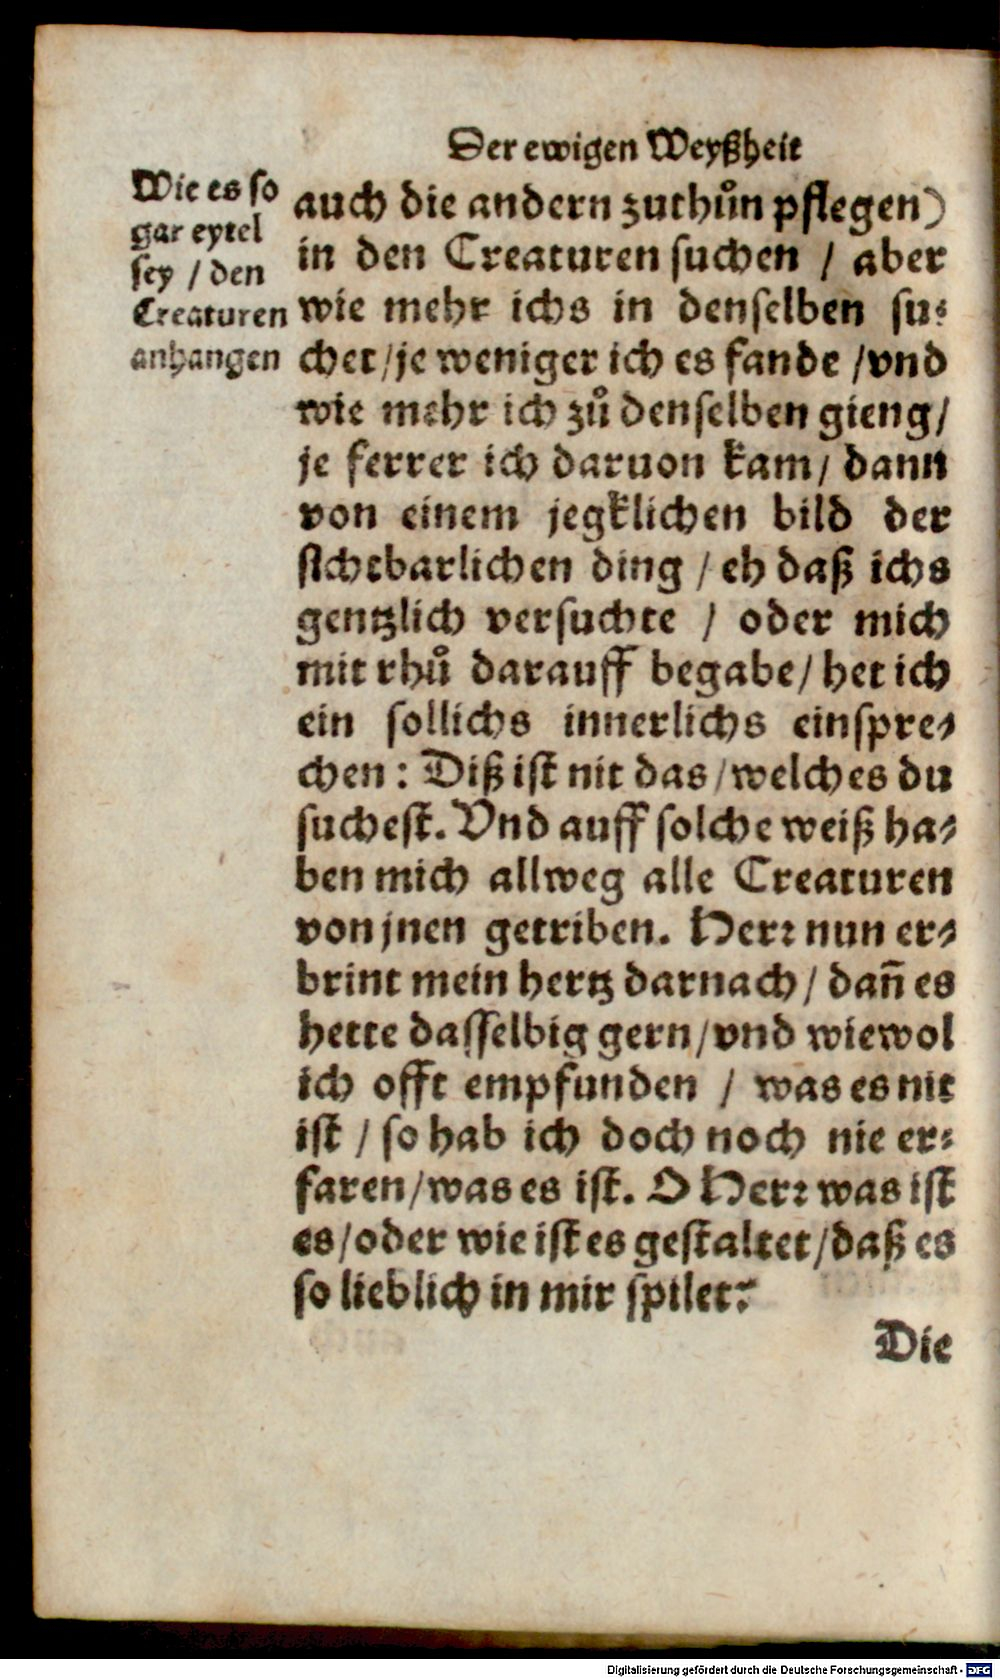 Der ewigen Weyßheit
Wie es so
gar eytel
sey / den
Creaturen
anhangen
auch die andern zuthůn pflegen)
in den Creaturen suchen / aber
wie mehr ichs in denselben su-
chet / je weniger ich es fande / vnd
wie mehr ich zů denselben gieng /
je ferrer ich daruon kam / dann
von einem jegklichen bild der
sichtbarlichen ding / eh daß ichs
gentzlich versuchte / oder mich
mit rhů darauff begabe / het ich
ein sollichs innerlichs einspre-
chen : Diß ist nit das / welches du
suchest. Vnd auff solche weiß ha-
ben mich allweg alle Creaturen
von jnen getriben. Herr nun er-
brint mein hertz darnach / dañ es
hette dasselbig gern / vnd wiewol
ich offt empfunden / was es nit
ist / so hab ich doch noch nie er-
faren / was es ist. O Herr was ist
es / oder wie ist es gestaltet / daß es
so lieblich in mir spilet?
Die
Digitalisierung gefördert durch die Deutsche Forschungsgemeinschaft - DFG